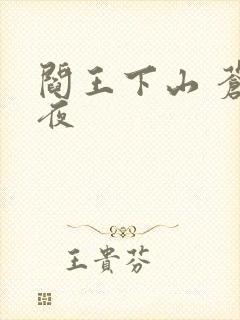 閻王下山 蒼
夜
王貴芬